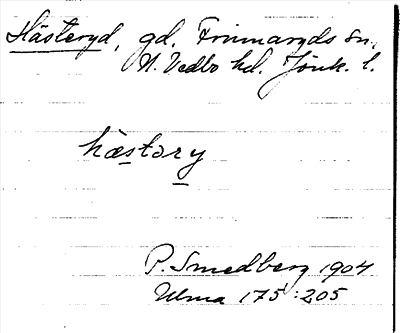 Hästeryd, gd. Frinnaryds sn,
N. Vedbo hd. Jönk. l.
hæstəry
P. Smedberg 1904
Ulma 175:205